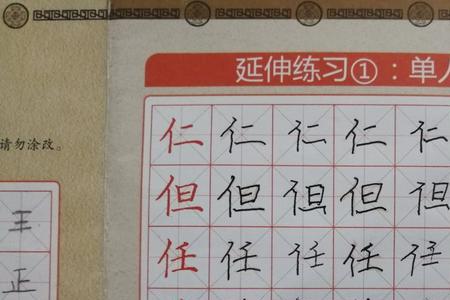 延伸练习①:单
请勿涂改。
仁仁仁仁仁
但但但但但
任任任任任
王
正